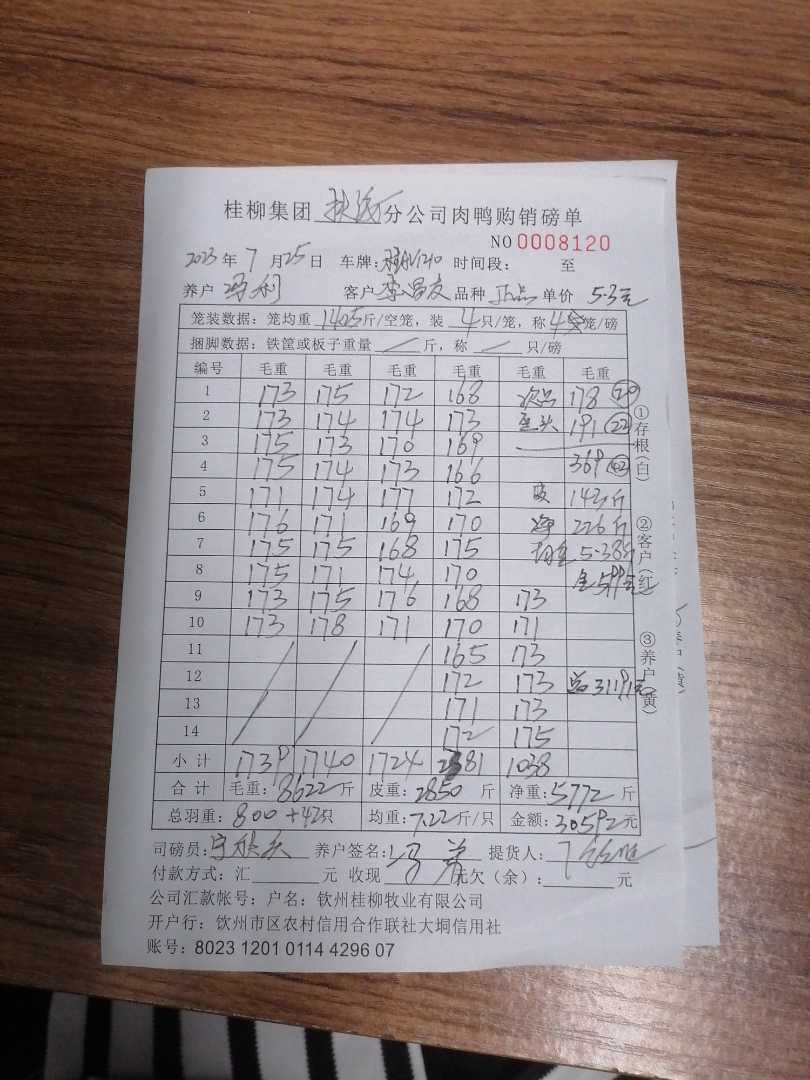 桂柳集团 分公司肉鸭购销磅单
NO 0008120
2023年 7 月25日 车牌: 1210 时间段: 至
养户 冯利 客户 李昌友 品种 正品 单价 5.3元
笼装数据: 笼均重 14.25斤/空笼, 装 4只/笼, 称4笼/磅
捆脚数据: 铁筐或板子重量 / 斤, 称 / 只/磅
编号 毛重 毛重 毛重 毛重 毛重 毛重
1 173 175 172 168 次品 178 20
2 173 174 174 173 歪头 191 22
3 175 173 170 169
4 175 174 173 166 369 42
5 171 174 177 172 皮 143斤
6 176 171 169 170 净 226斤
7 175 175 168 175 均重 5.38斤
8 175 171 174 170 金599元
9 173 175 176 168 173
10 173 178 171 170 171
11 165 173
12 172 173 总31191元
13 171 173
14 172 175
小计 1739 1740 1724 2381 1038
合计 毛重: 8622 斤 皮重: 2850 斤 净重: 5772 斤
总羽重: 800 +42只 均重: 7.22斤/只 金额: 30592元
司磅员: 养户签名: 冯 提货人:
付款方式: 汇 元 收现 元欠(余): 元
公司汇款帐号: 户名: 钦州桂柳牧业有限公司
开户行: 钦州市区农村信用合作联社大垌信用社
账号: 8023 1201 0114 4296 07
①存根(白) ②客户(红) ③养户(黄)